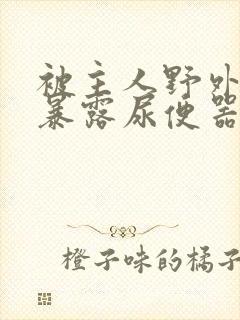 被主人野外
暴露尿便器
橙子味的橘子